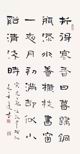 折得寒香日暮歸銅
瓶添水養橫枝書窗
一夜月初滿卻似小
溪清淺時